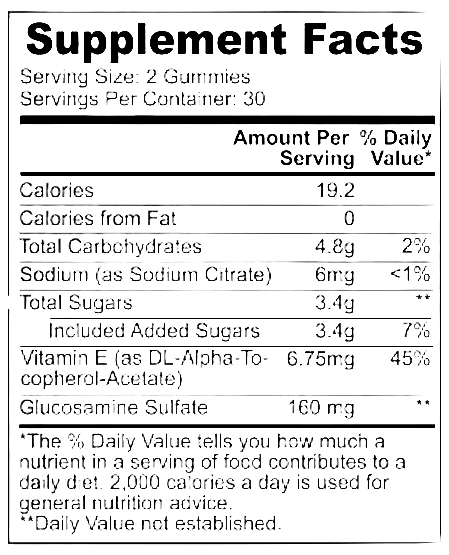 Supplement Facts
Serving Size: 2 Gummies
Servings Per Container: 30
Amount Per % Daily
Serving Value*
Calories 19.2
Calories from Fat 0
Total Carbohydrates 4.8g 2%
Sodium (as Sodium Citrate) 6mg <1%
Total Sugars 3.4g **
Included Added Sugars 3.4g 7%
Vitamin E (as DL-Alpha-To- 6.75mg 45%
copherol-Acetate)
Glucosamine Sulfate 160 mg **
*The % Daily Value tells you how much a
nutrient in a serving of food contributes to a
daily diet. 2,000 calories a day is used for
general nutrition advice.
**Daily Value not established.